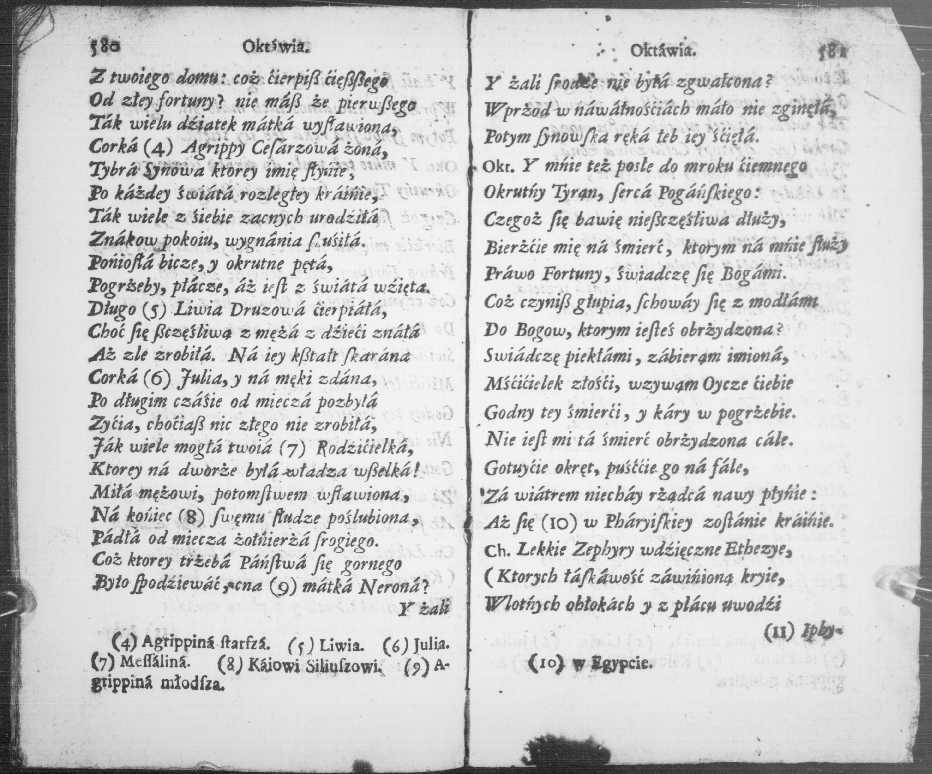 580 Oktáwia.
Z twoiego domu: coż ćierpiß ćięßßego
Od złey fortuny? nie máß że pierwßego
Ták wielu dźiatek mátká wysławiona,
Corká (4) Agrippy Cesarzowá żoná,
Tybrá Synowa ktorey imię słynie,
Po káżdey świátá rozległey kráinie,
Ták wiele z śiebie zacnych urodźiłá
Znákow pokoiu, wygnánia skuśiłá.
Poniosłá bicze, y okrutne pętá,
Pogrzeby, płácze, áż iest z świátá wzięta.
Długo (5) Liwia Druzowá ćierpiáłá,
Choć się ßczęśliwą z mężá z dźieći znáłá
Aż zle zrobiłá. Ná iey kßtałt skarána
Corká (6) Julia, y ná męki zdána,
Po długim czáśie od mieczá pozbyłá
Zyćia, choćiaß nic złego nie zrobiłá,
Ják wiele mogłá twoiá (7) Rodźićielká,
Ktorey ná dworze byłá władza wßelká!
Miłá mężowi, potomstwem wsławiona,
Ná koniec (8) swęmu słudze poślubiona,
Pádłá od miecza żołnierzá srogiego.
Coż ktorey trzebá Páństwá się gornego
Było spodźiewáć, cna (9) mátká Neroná?
Y żali
(4) Agrippiná starszá. (5) Liwia. (6) Julia.
(7) Messáliná. (8) Káiowi Siliuszowi. (9) A-
grippiná młodsza.
Oktáwia. 581
Y żali srodze nie byłá zgwałcona?
Wprzod w náwáłnośćiách máło nie zginęłá,
Potym synowská ręká łeb iey śćięłá.
Okt. Y mnie też posle do mroku ćiemnego
Okrutny Tyran, sercá Pogáńskiego:
Czegoż się bawię nießczęśliwa dłuży,
Bierzćie mię ná śmierć, ktorym ná mnie służy
Práwo Fortuny, świadczę się Bogámi.
Coż czyniß głupia, schowáy się z modłámi
Do Bogow, ktorym iesteś obrzydzona?
Swiádczę piekłámi, zábierąm imioná,
Mśćićielek złośći, wzywam Oycze ćiebie
Godny tey śmierći, y káry w pogrzebie.
Nie iest mi tá śmierć obrzydzona cále.
Gotuyćie okręt, puśćcie go ná fále,
Zá wiátrem niecháy rządcá nawy płynie:
Aż się (10) w Pháryiskiey zostánie kráinie.
Ch. Lekkie Zephyry wdźięczne Ethezye,
(Ktorych łáskáwość záwinioną kryie,
Wlotnych obłokách y z płácu uwodźi
(11) Iphy-
(10) w Egypcie.